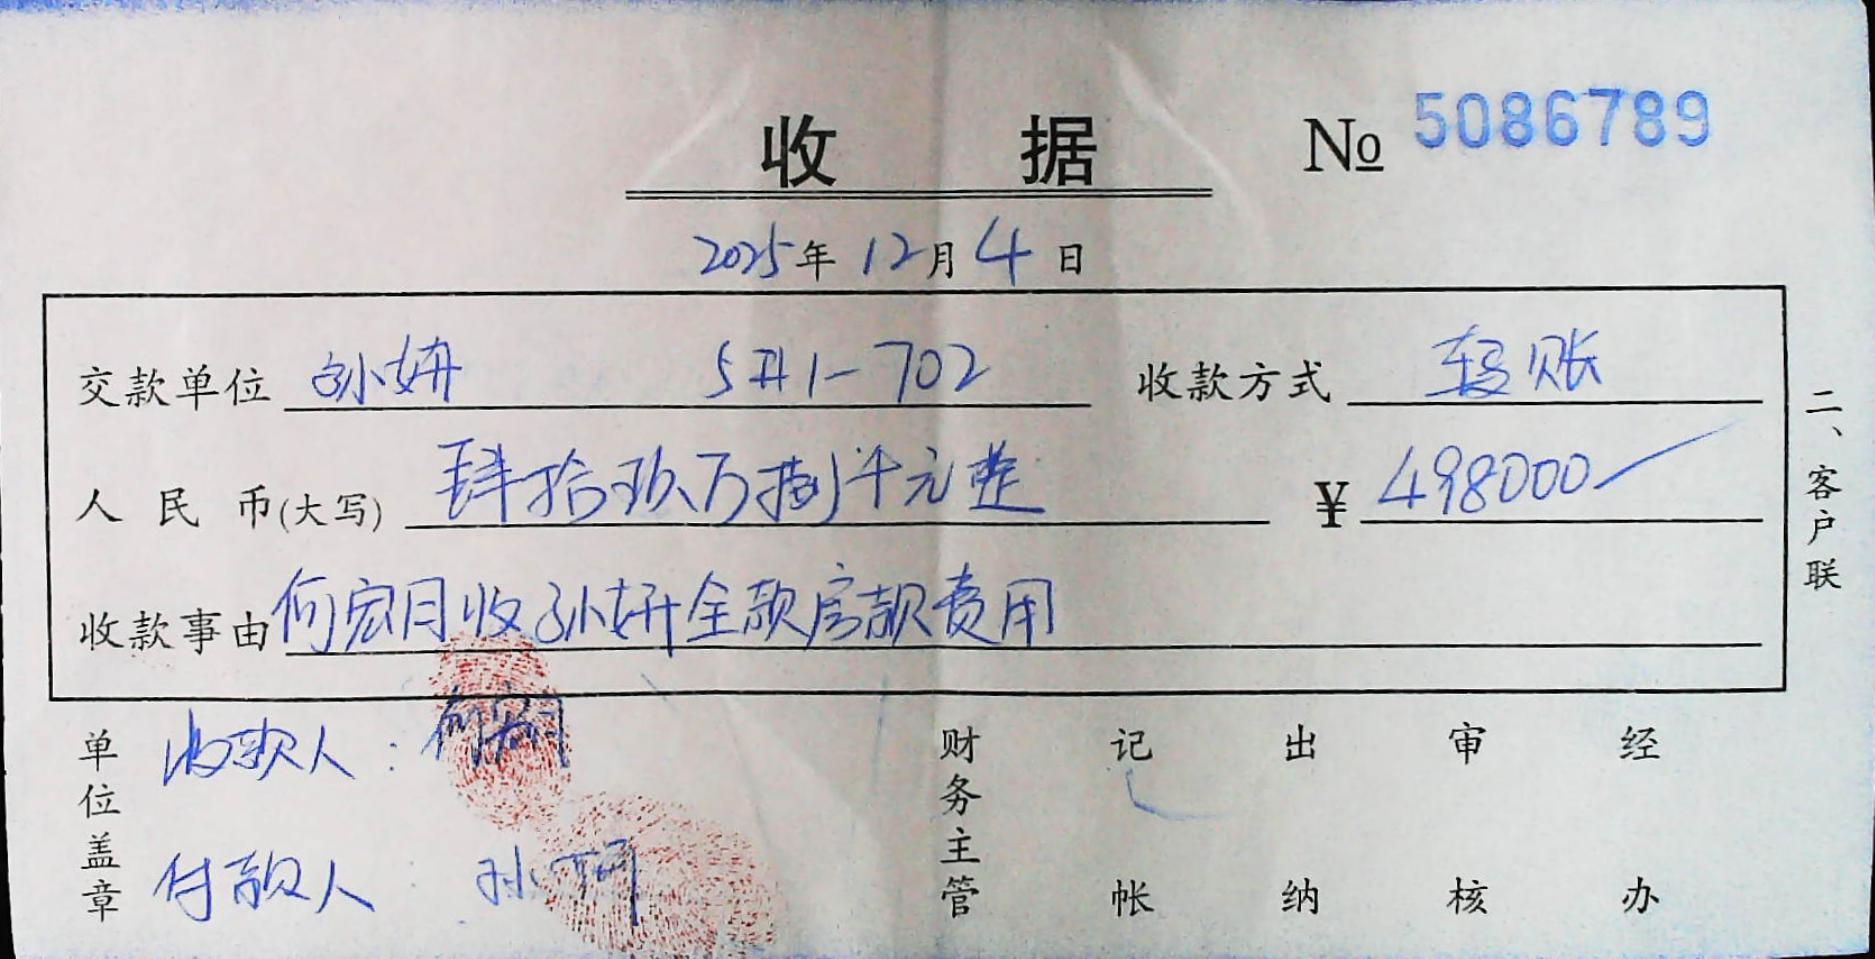 收据 № 5086789
2025年 12月 4日
交款单位 孙妍 5#1-702 收款方式 转账
人民币(大写) 肆拾玖万捌仟元整 ¥ 498000
收款事由 何宏月收孙妍全款房款费用
二、客户联
单位盖章 收款人: 何宏月
付款人 孙妍
财务主管 记帐 出纳 审核 经办